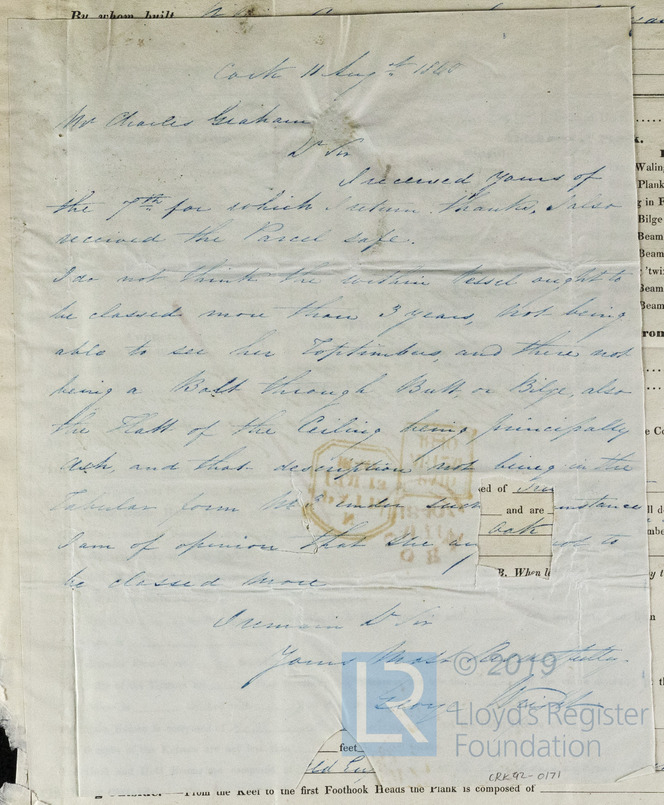 By whom built
Cork 11 Augt 1840
Mr Charles Graham
Dr Sir
I received yours of
the 7th for which I return thanks, I also
received the Parcel safe.
I do not think the within vessel ought to
be classed more than 3 years, not being
able to see her Toptimbers, and there not
being a Bolt through Butt, or Bilge, also
the Flatt of the Ceiling being principally
Ash, and that description not being in the
Tabular form No 2 under such instance
I am of opinion that she ought not to
be classed more
I remain Dr Sir
Yours Most
George
ed of
and are
oak
B. When
feet
From the Keel to the first Foothook Heads the Plank is composed of
Plank
in F
Bilge
Beam
'twi
Beam
Beam
© 2019
LR
Lloyd's Register
Foundation
CRK92-0171